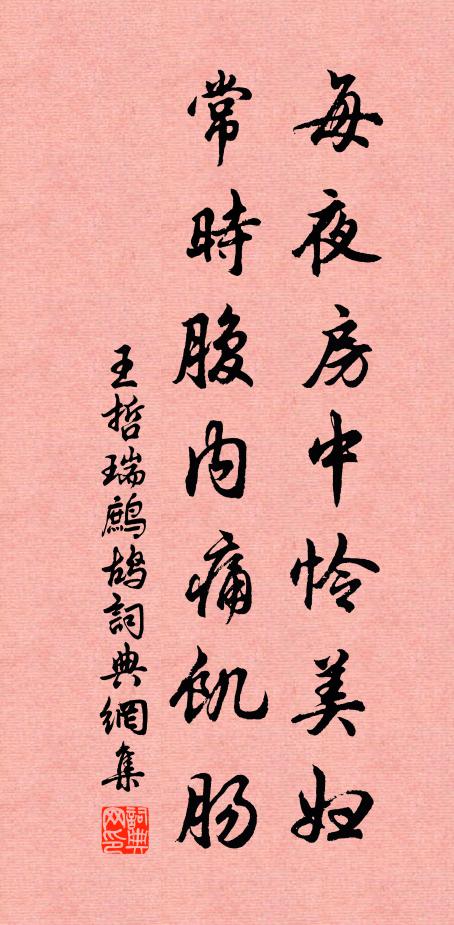 每夜房中怜美妇
常時腹内痛飢肠
王哲瑞鷓鴣詞典網集
詞典网印